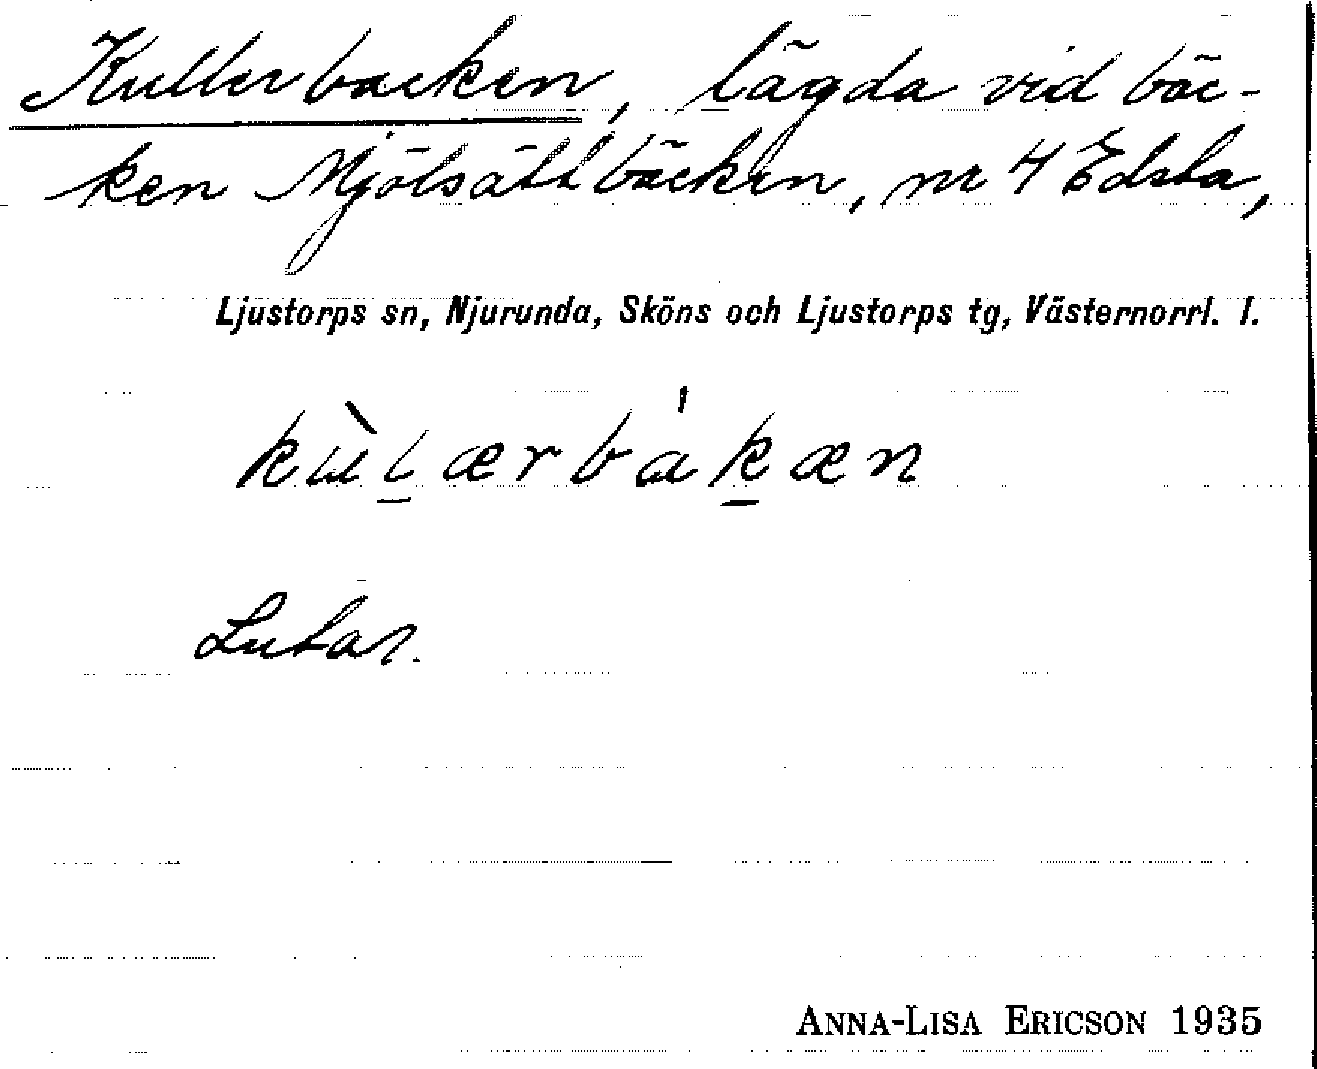 Kullerbacken, lägda vid bäc-
ken Mjölsättbäcken, nr 4 Edsta,
Ljustorps sn, Njurunda, Sköns och Ljustorps tg, Västernorrl. l.
kùl̲ærbák̲æn
Lutar.
ANNA-LISA ERICSON 1935